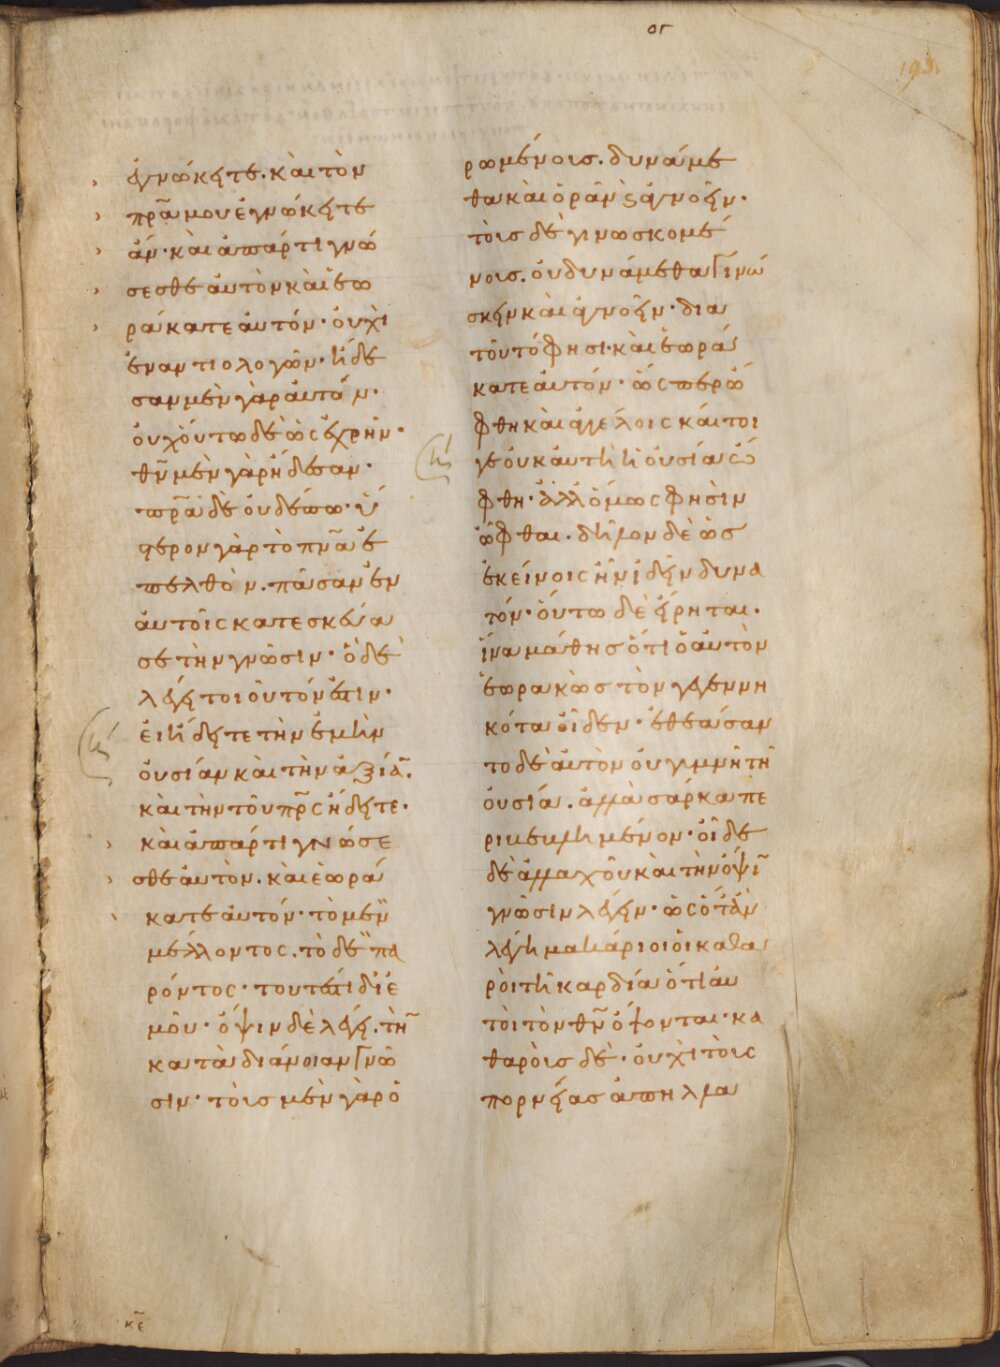 ογ
193
ἐγνώκητε. καὶ τὸν
πρ̅α μου ἐγνώκητε
ἄν· καὶ ἀπάρτι γνώ
σεσθε αὐτὸν καὶ ἑω
ράκατε αὐτόν· οὐχὶ
ἐναντιολογῶν· ἤδε
σαν μὲν γὰρ αὐτόν·
οὐχ οὕτω δὲ ὡς ἐχρῆν·
θν̅ μὲν γὰρ ἤδεσαν·
πρ̅α δὲ οὐδέπω· ὕ
στερον γὰρ τὸ πν̅α ἐ
πελθὸν. πᾶσαν ἐν
αὐτοῖς κατεσκεύα
σε τὴν γνῶσιν· ὃ δὲ
λέγει τοιοῦτόν ἐστιν·
εἰ ᾔδειτε τὴν ἐμὴν
οὐσίαν καὶ τὴν ἀξία̅.
καὶ τὴν τοῦ πρ̅ς ᾔδειτε·
καὶ ἀπάρτι γνώσε
σθε αὐτὸν. καὶ ἑωρά
κατε αὐτόν· τὸ μὲν
μέλλοντος. τὸ δὲ πα
ρόντος· τουτέστι δι' ἐ
μοῦ· ὄψιν δὲ λέγει. τὴ̅
κατὰ διάνοιαν γνῶ
σιν· τοὺς μὲν γὰρ ὁ
ρωμένοις. δυνάμε
θα καὶ ὁρᾶν ϛ ἀγνοεῖν·
τοῖς δὲ γινωσκομέ
νοις. οὐ δυνάμεθα γινώ
σκειν καὶ ἀγνοεῖν· δια
τοῦτό φησι· καὶ ἑωρά
κατε αὐτόν· ὥσπερ ὤ
φθη καὶ ἀγγέλοις καίτοι
γε οὐκ αὐτὴ ἡ οὐσία ὤ
φθη· ἀλλ' ὅμως φησὶν
ὦφθαι. δῆλον δὲ ὡς
ἐκείνοις ἦν ἰδεῖν δυνα
τόν· οὕτω δὲ εἴρηται.
ἵνα μάθῃς ὅτι ὁ αὐτὸν
ἑωρακὼς τὸν γεγεννη
κότα οἶδεν· ἐθεάσαν
το δὲ αὐτὸν οὐ γυμνῆ τῆ
οὐσία. ἀλλὰ σάρκα πε
ρικεκλημένον· οἶδε
δὲ ἀλλαχοῦ καὶ τὴν ὄψι̅
γνῶσιν λέγειν· ὡς ὅταν
λέγη μακάριοι οἱ καθα
ροὶ τῆ καρδία ὅτι αὐ
τοὶ τὸν θν̅ ὄψονται· κα
θαροὺς δὲ· οὐχὶ τοὺς
πορνείας ἀπηλλα
κε̅